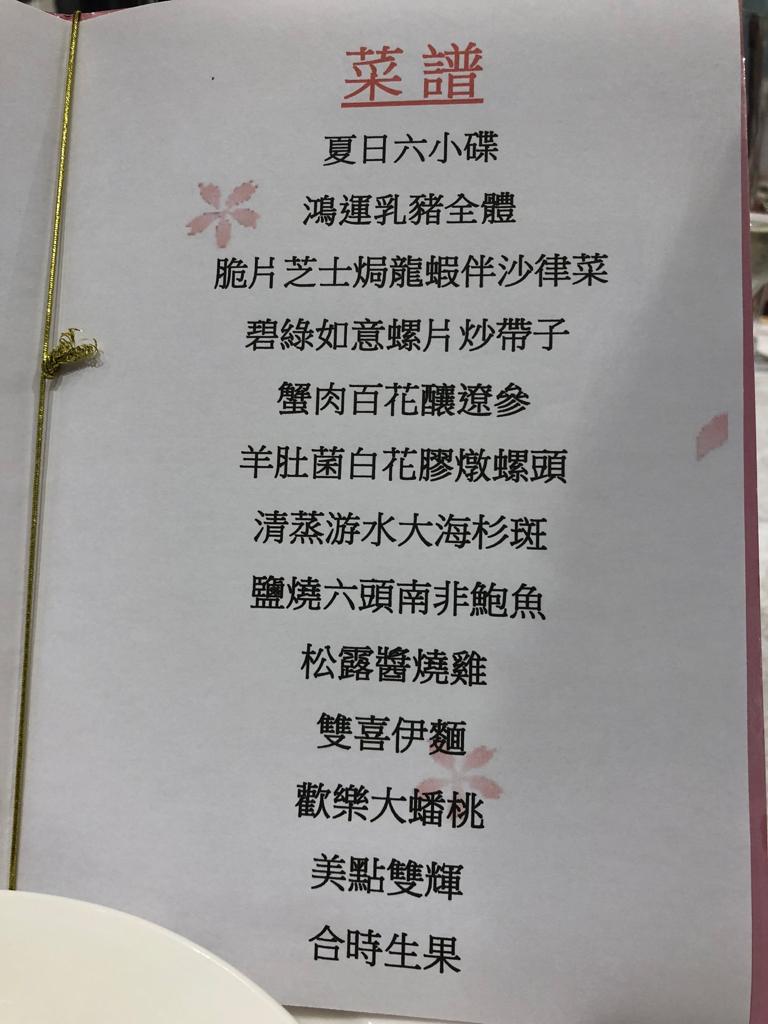 菜譜
夏日六小碟
鴻運乳豬全體
脆片芝士焗龍蝦伴沙律菜
碧綠如意螺片炒帶子
蟹肉百花釀遼參
羊肚菌白花膠燉螺頭
清蒸游水大海杉斑
鹽燒六頭南非鮑魚
松露醬燒雞
雙喜伊麵
歡樂大蟠桃
美點雙輝
合時生果